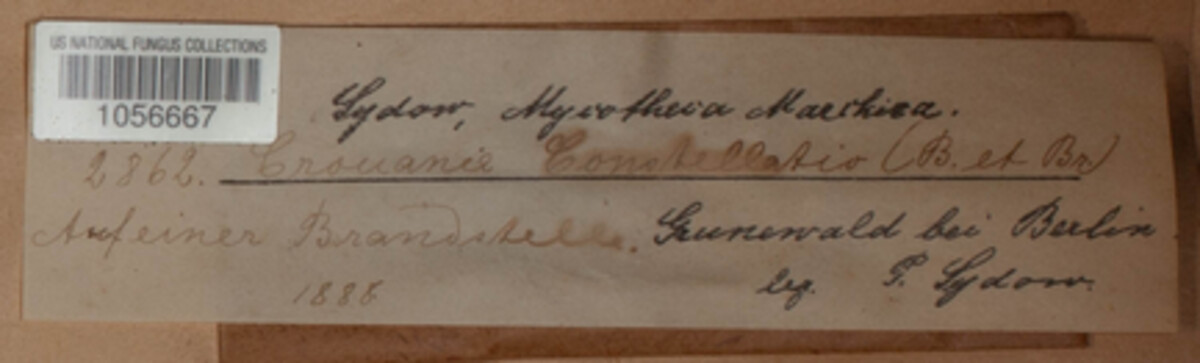 US NATIONAL FUNGUS COLLECTIONS
1056667
Sydow, Mycotheca Marchica.
2862. Crouania Constellatio (B. et Br)
Auf einer Brandstelle. Grunewald bei Berlin
1888 leg. P. Sydow.